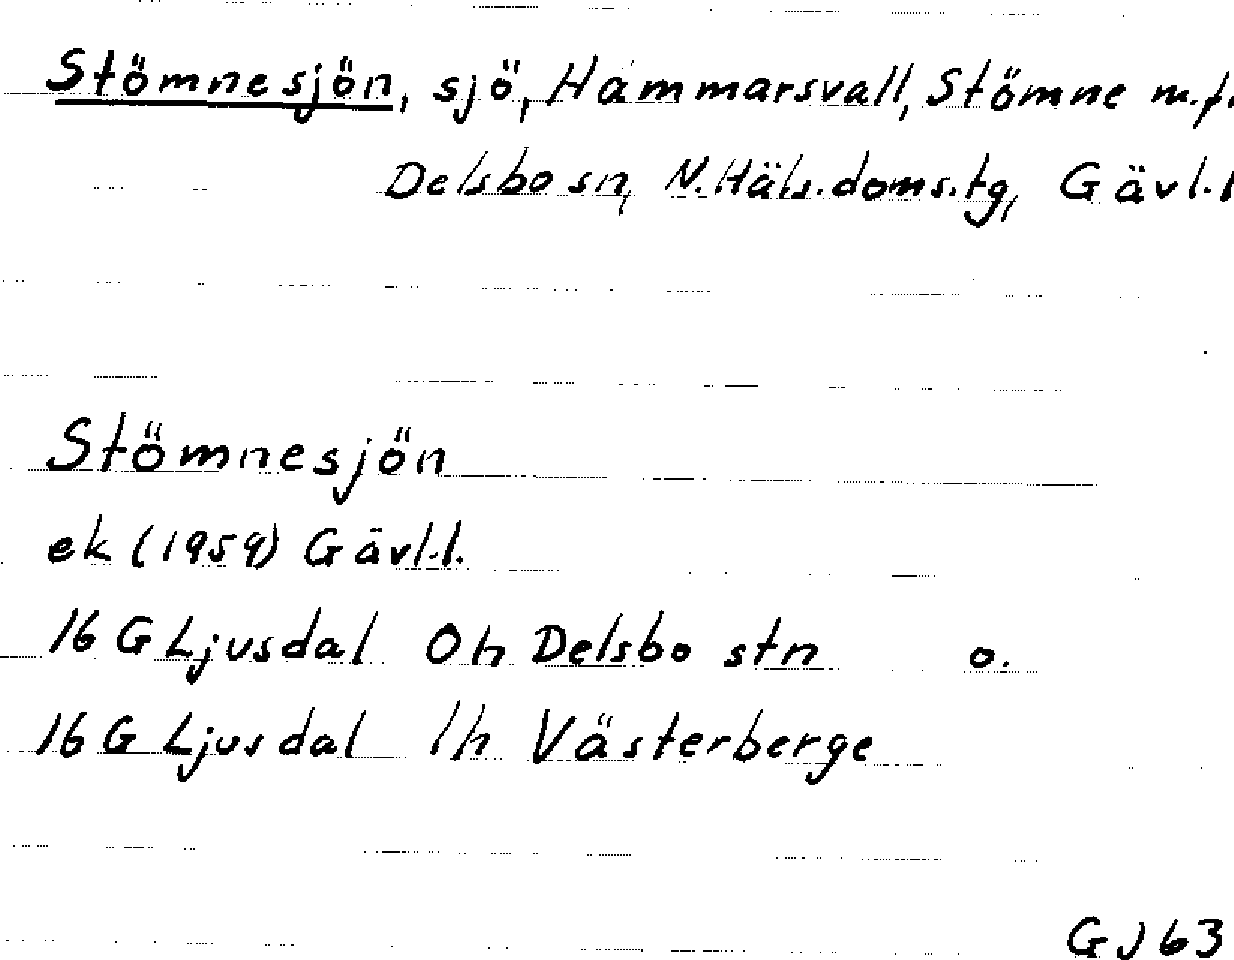 Stömnesjön, sjö, Hammarsvall, Stömne m.fl.
Delsbo sn, N.Häls.doms.tg, Gävl.l
Stömnesjön
ek (1959) Gävl.l.
16 G Ljusdal 0h Delsbo stn o.
16 G Ljusdal 1h Västerberge
GJ 63